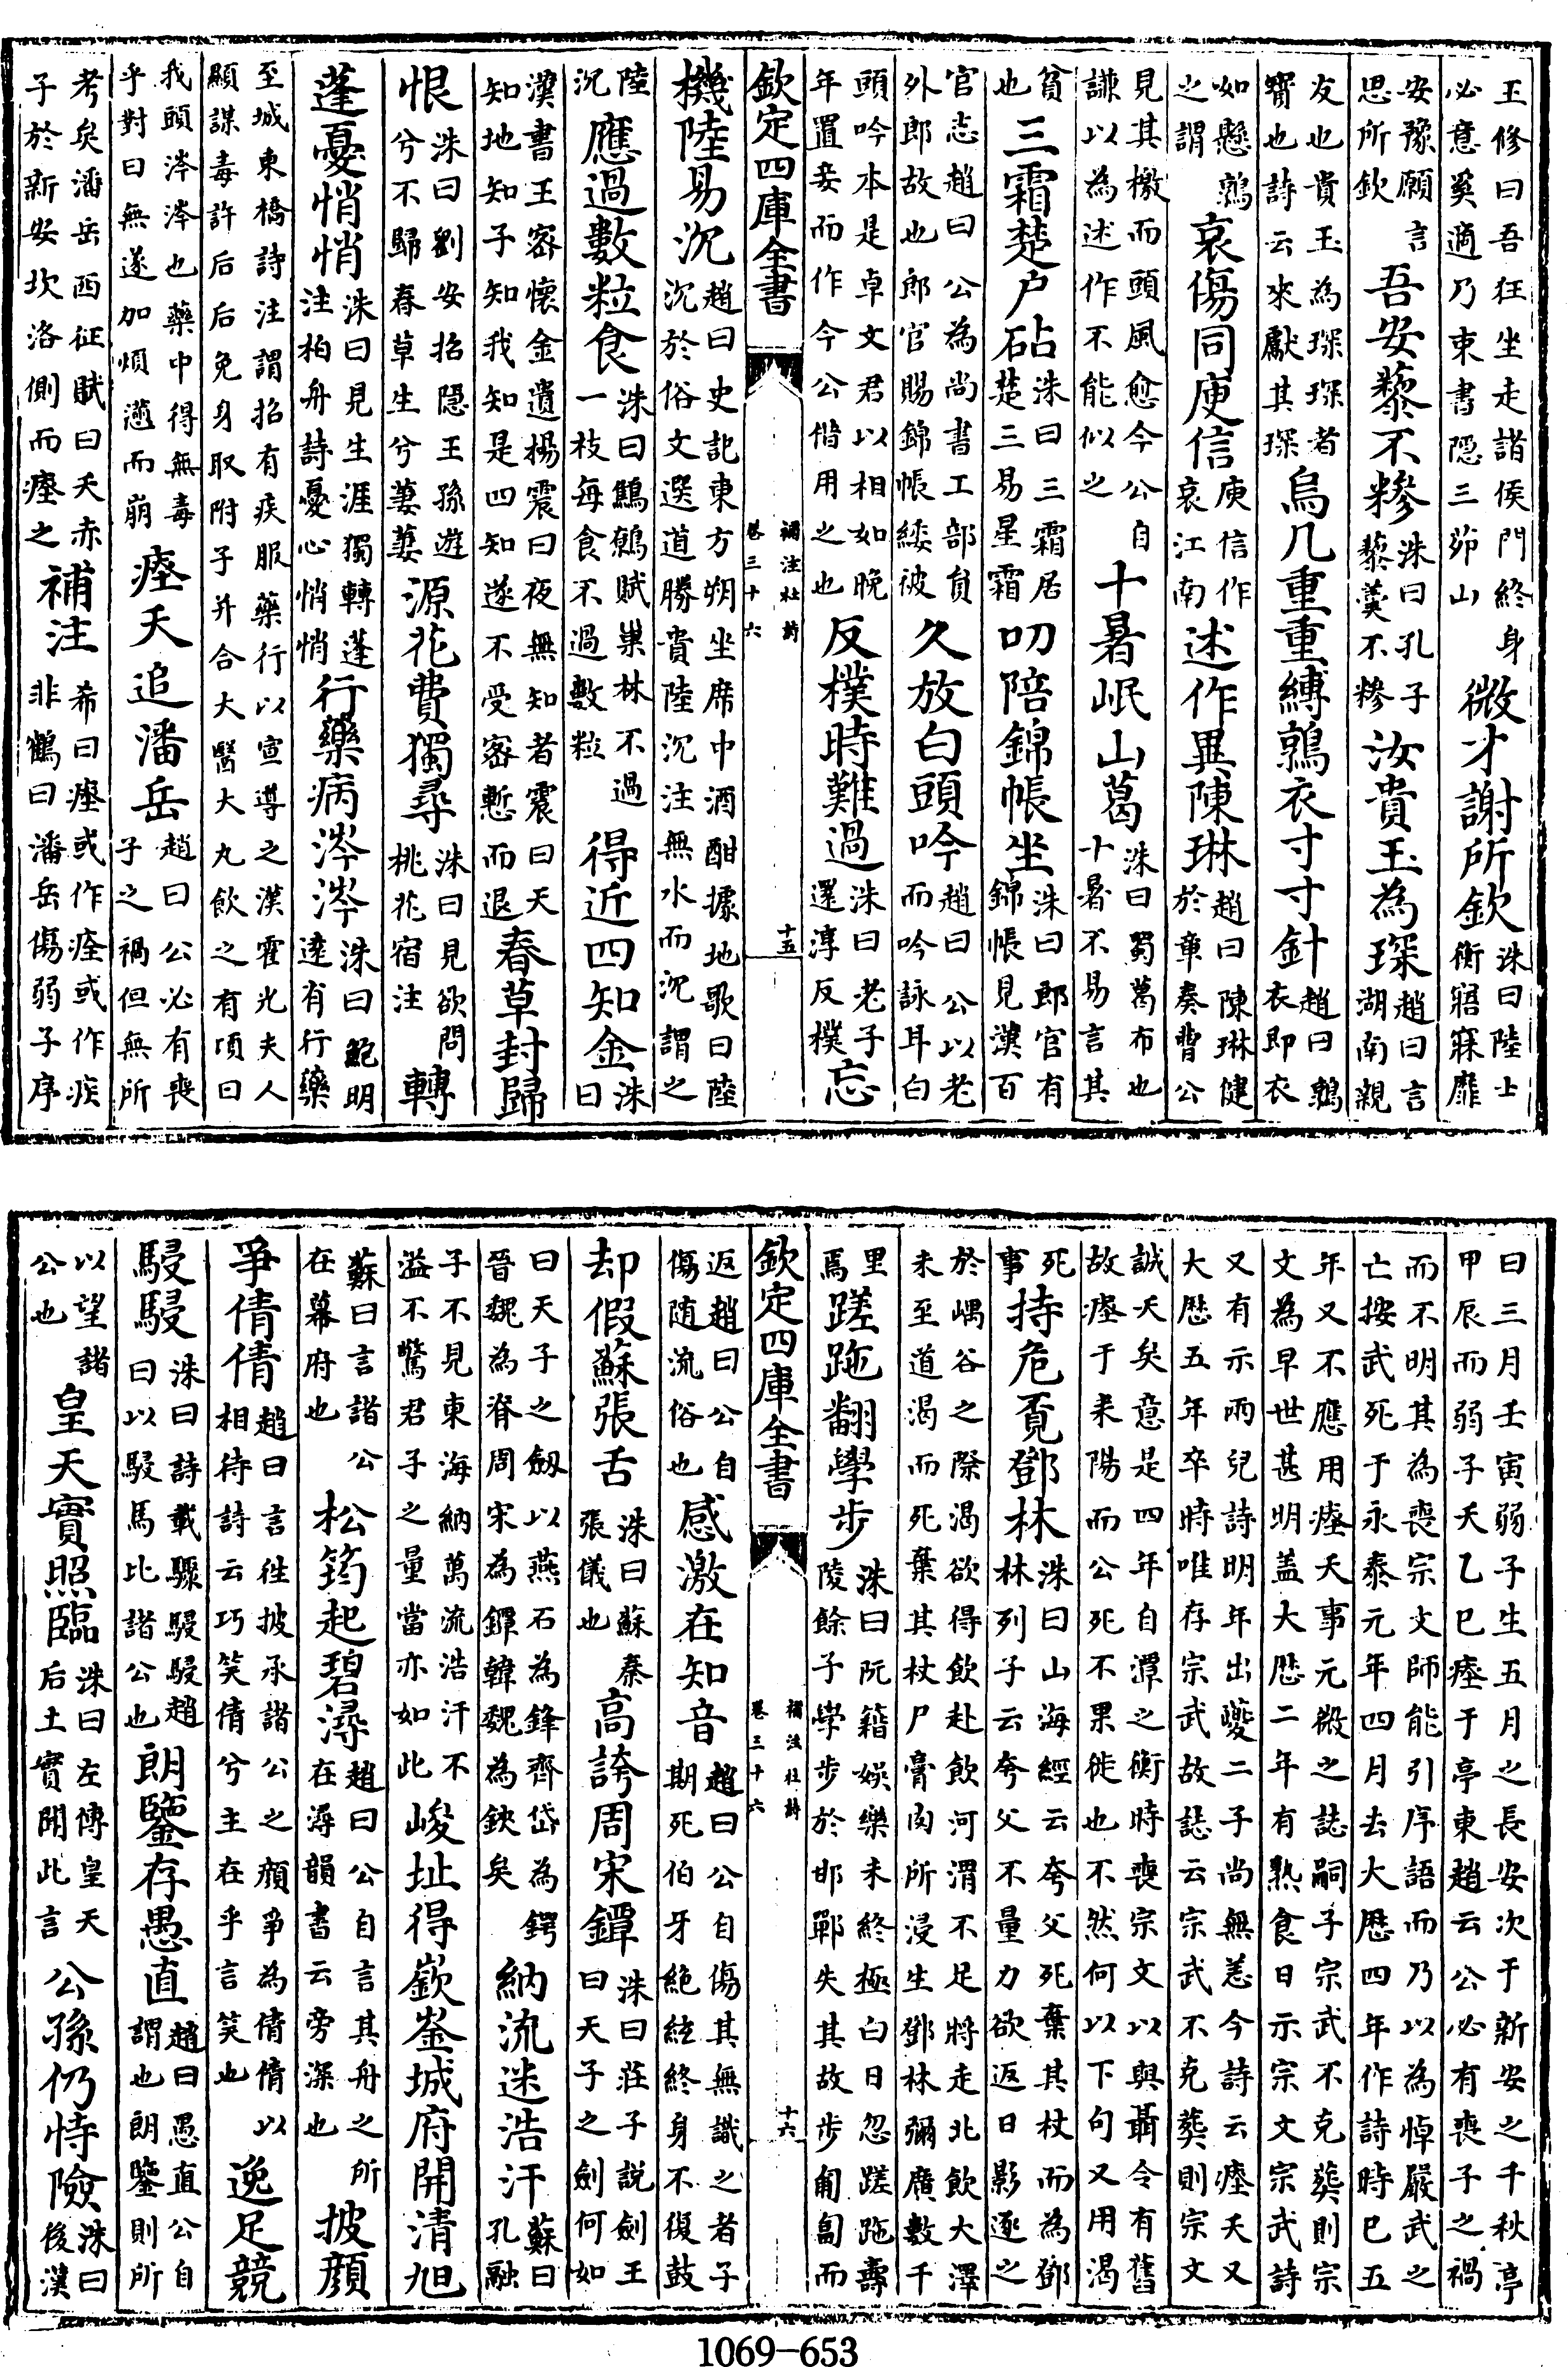 王修曰吾狂坐走諸侯門終身必意奚適乃東書隠三茆山微才謝所欽洙曰陸士衡寤寐靡
安豫願言思所欽吾安藜不糝洙曰孔子藜羮不糝汝貴玉為琛趙曰言湖南親
友也貴玉為琛琛者寳也詩云來獻其琛烏几重重縛鶉衣寸寸針趙曰鶉衣即衣
如懸鶉之謂哀傷同庾信庾信作哀江南述作異陳琳趙曰陳琳健於章奏曹公
見其檄而頭風愈今公自謙以為述作不能似之十暑岷山葛洙曰蜀葛布也十暑不易言其
貧也三霜楚户砧洙曰三霜居楚三易星霜叨陪錦帳坐洙曰郎官有錦帳見漢百
官志趙曰公為尚書工部員外郎故也郎官賜錦帳綾被久放白頭吟趙曰公以老而吟詠耳白
頭吟本是卓文君以相如晚年置妾而作今公借用之也反樸時難過洙曰老子還淳反樸忘
欽定四庫全書 補注杜詩卷三十六 十五
機陸易沉趙曰史記東方朔坐席中酒酣據地歌曰陸沉於俗文選道勝貴陸沉注無水而沉謂之
陸沉應過數粒食洙曰鷦鷯賦巢林不過一枝每食不過數粒得近四知金洙曰
漢書王密懷金遺楊震曰夜無知者震曰天知地知子知我知是四知遂不受密慙而退春草封歸
恨洙曰劉安招隱王孫遊兮不歸春草生兮萋萋源花費獨尋洙曰見欲問桃花宿注轉
蓬憂悄悄洙曰見生涯獨轉蓬注柏舟詩憂心悄悄行藥病涔涔洙曰鮑明逺有行藥
至城東橋詩注謂招有疾服藥行以宣遵之漢霍光夫人顯謀毒許后后免身取附子并合大醫大丸飲之有頃曰
我頭涔涔也藥中得無毒乎對曰無遂加煩懣而崩瘞夭追潘岳趙曰公必有喪子之禍但無所
考矣潘岳西征賦曰夭赤子於新安坎洛側而瘞之補注希曰瘞或作痊或作疾非鶴曰潘岳傷弱子序
曰三月壬寅弱子生五月之長安次于新安之千秋亭甲辰而弱子夭乙巳瘞于亭東趙云公必有喪子之禍
而不明其為喪宗文師能引序語而乃以為悼嚴武之亡按武死于永泰元年四月去大厯四年作詩時已五
年又不應用瘞夭事元微之誌嗣子宗武不克葬則宗文為早世甚明盖大厯二年有熟食日示宗文宗武詩
又有示兩兒詩明年出夔二子尚無恙今詩云瘞夭又大厯五年卒時唯存宗武故誌云宗武不克葬則宗文
誠夭矣意是四年自潭之衡時喪宗文以與聶令有舊故瘞于耒陽而公死不果徙也不然何以下句又用渴
死事持危覔鄧林洙曰山海經云夸父死棄其杖而為鄧林林列子云夸父不量力欲返日影逐之
於嵎谷之際渴欲得飲赴飲河渭不足將走北飲大澤未至道渴而死棄其杖尸膏肉所浸生鄧林彌廣數千
里焉蹉跎翻學步洙曰阮籍娱樂未終極白日忽蹉跎壽陵餘子學步於邯鄲失其故步匍匐而
欽定四庫全書 補注杜詩卷三十六 十六
返趙曰公自傷隨流俗也感激在知音趙曰公自傷其無識之者子期死伯牙絶絃終身不復鼓
却假蘇張舌洙曰蘇秦張儀也高誇周宋鐔洙曰莊子説劍王曰天子之劍何如
曰天子之劒以燕石為鋒齊岱為鍔晉魏為脊周宋為鐔韓魏為鋏矣納流迷浩汗蘇曰孔融
子不見東海納萬流浩汗不溢不驚君子之量當亦如此峻址得嶔崟城府開清旭
蘇曰言諸公在幕府也松筠起碧潯趙曰公自言其舟之所在潯韻書云旁深也披顔
爭倩倩趙曰言徃披承諸公之顔爭為倩倩以相待詩云巧笑倩兮主在乎言笑也逸足競
駸駸洙曰詩載驟駸駸趙曰以駸馬比諸公也朗鑒存愚直趙曰愚直公自謂也朗鑒則所
以望諸公也皇天實照臨洙曰左傳皇天后土實聞此言公孫仍恃險洙曰後漢
1069-653